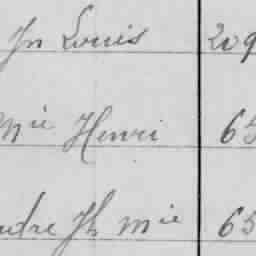 Jn Louis 209
Mie Henri 65
udre Jh Mie 65